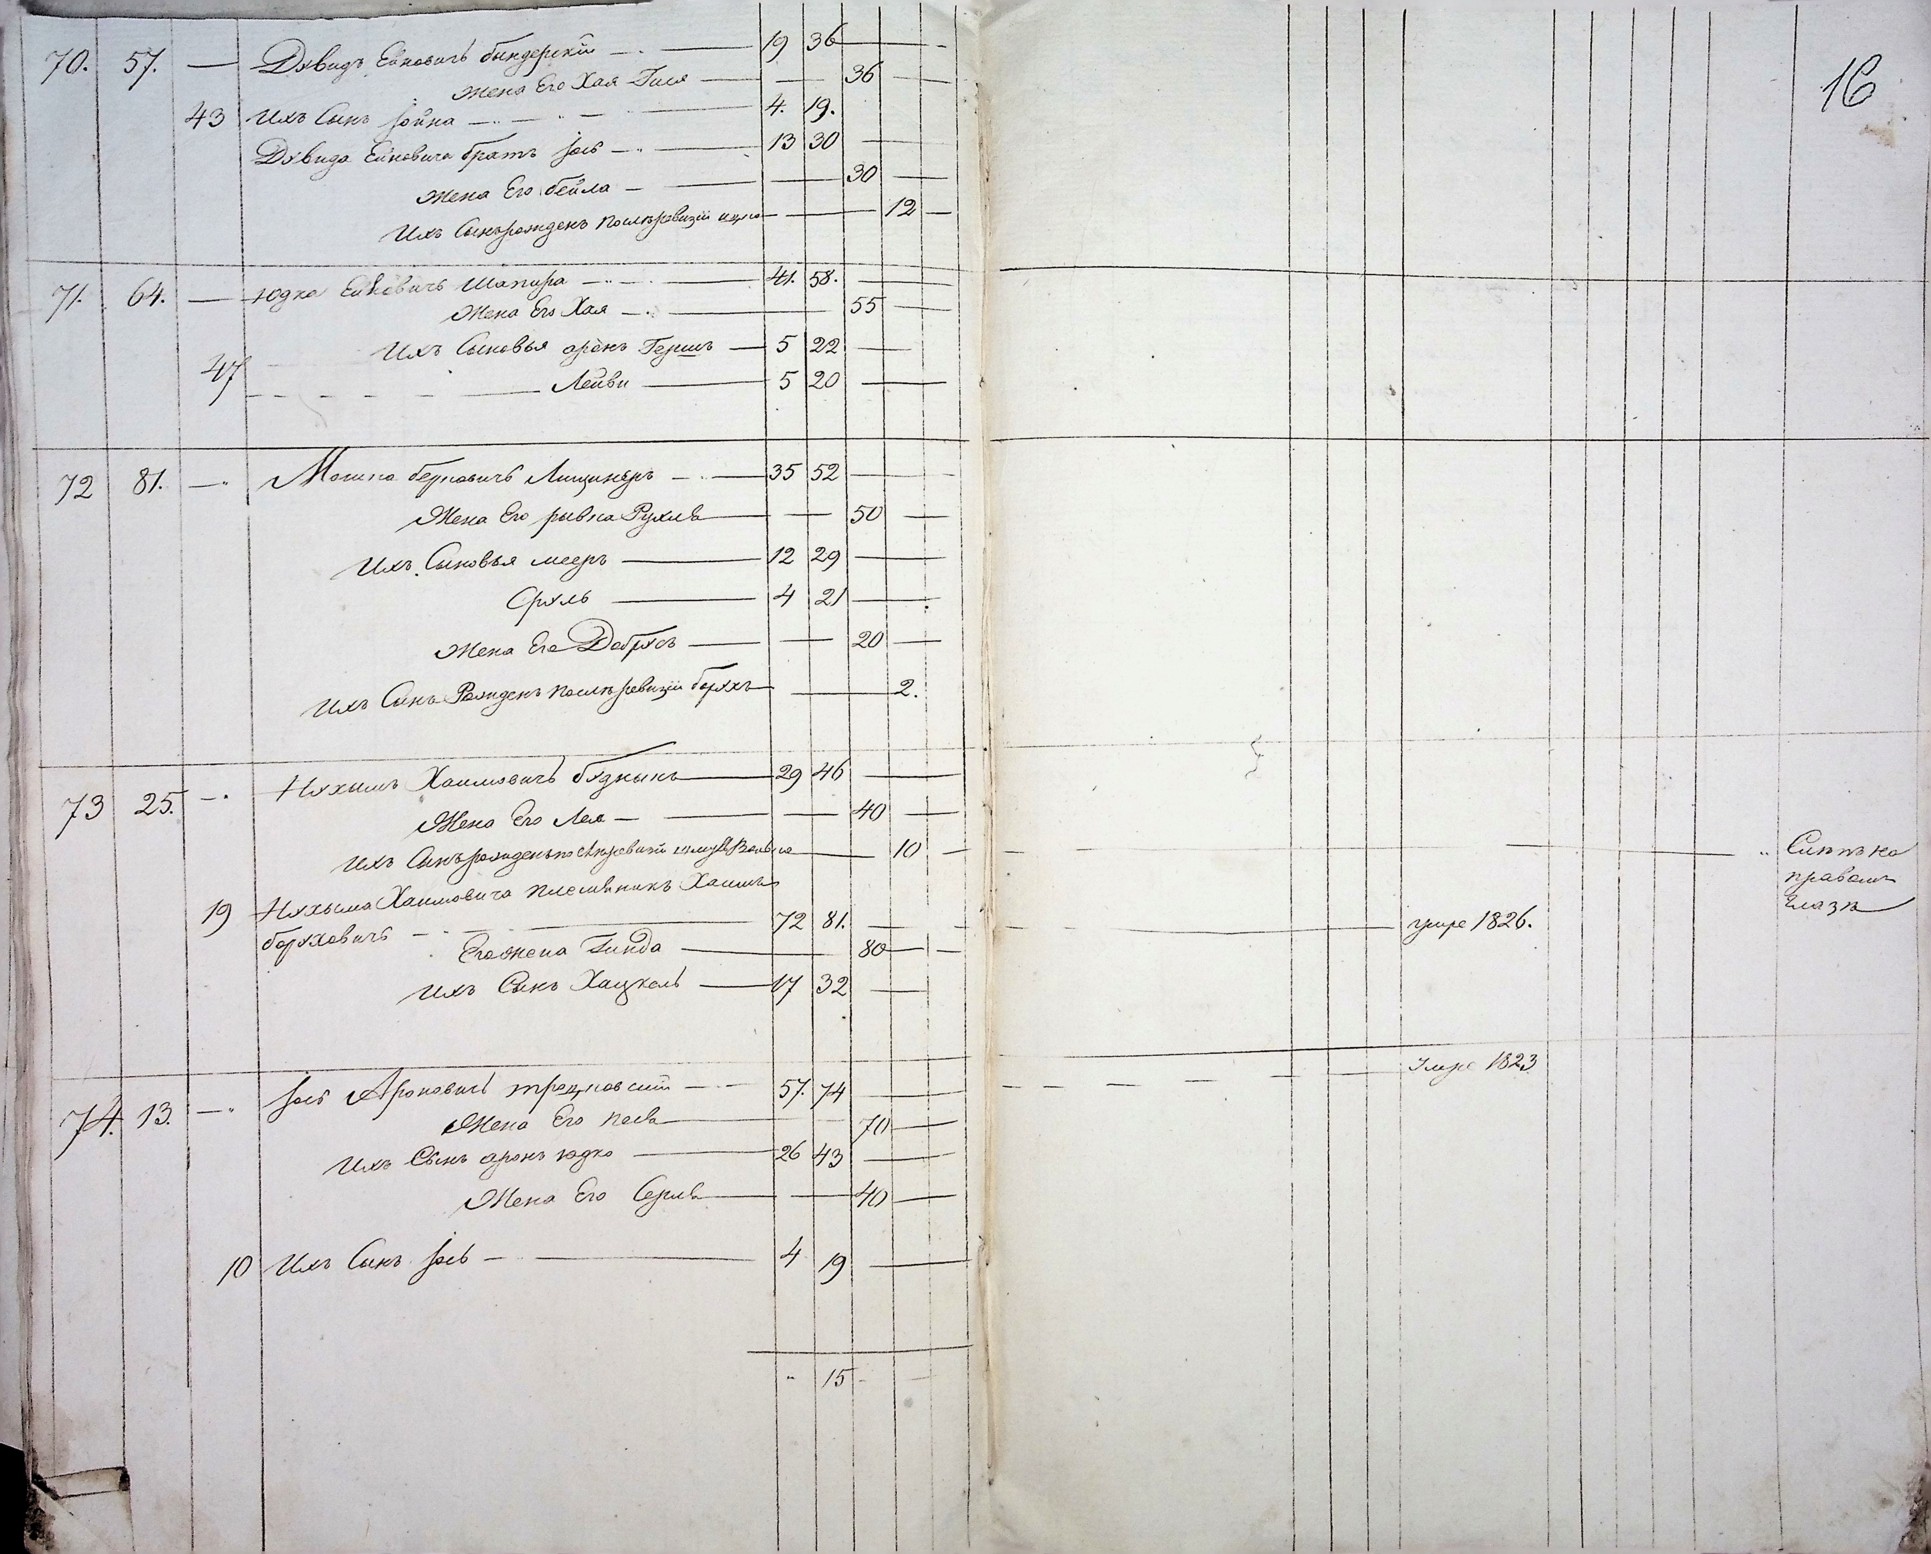 16
70. 57. — Дувидъ Ейновичъ бендерскій — 19 36 —
Жена Его Хая Гися — — 36 —
43 Ихъ Сынъ Іойна — 4. 19.
Дувида Ейновича братъ Іось — 13 30 —
Жена Его бейла — — 30 —
Ихъ Сынъ рожденъ послѣ ревизіи ицко — — 12 —
71. 64. — Юдко Шапира — 41. 58. —
Жена Его Хая — — 55 —
Ихъ Сыновья аронъ Гершъ — 5 22 —
47 — Лейви — 5 20 —
72 81. — Мошко берковичъ Лищинеръ — 35 52 —
Жена Его ривка Рухля — — 50 —
Ихъ Сыновья мееръ — 12 29 —
Сруль — 4 21 —
Жена Его Добрусъ — — 20 —
Ихъ Сынъ Рожденъ послѣ ревизіи борухъ — — 2.
73 25. — Нухымъ Хаимовичъ — 29 46 —
Жена Его Лея — — 40 —
Ихъ Сынъ рожденъ послѣ ревизіи Волько — 10 — Слѣпъ на
правомъ
глазѣ
19 Нухыма Хаимовича племяникъ Хаимъ
боруховичъ — 72 81. — умре 1826.
Его жена Гинда — 80 —
Ихъ Сынъ Хацкель — 17 32 —
74. 13. — Іось Ароновичъ — 57. 74 — Умре 1823
Жена Его песя — 70 —
Ихъ Сынъ аронъ юдко — 26 43 —
Жена Его Серля — — 40 —
10 Ихъ Сынъ Іось — 4 19 —
" 15 -